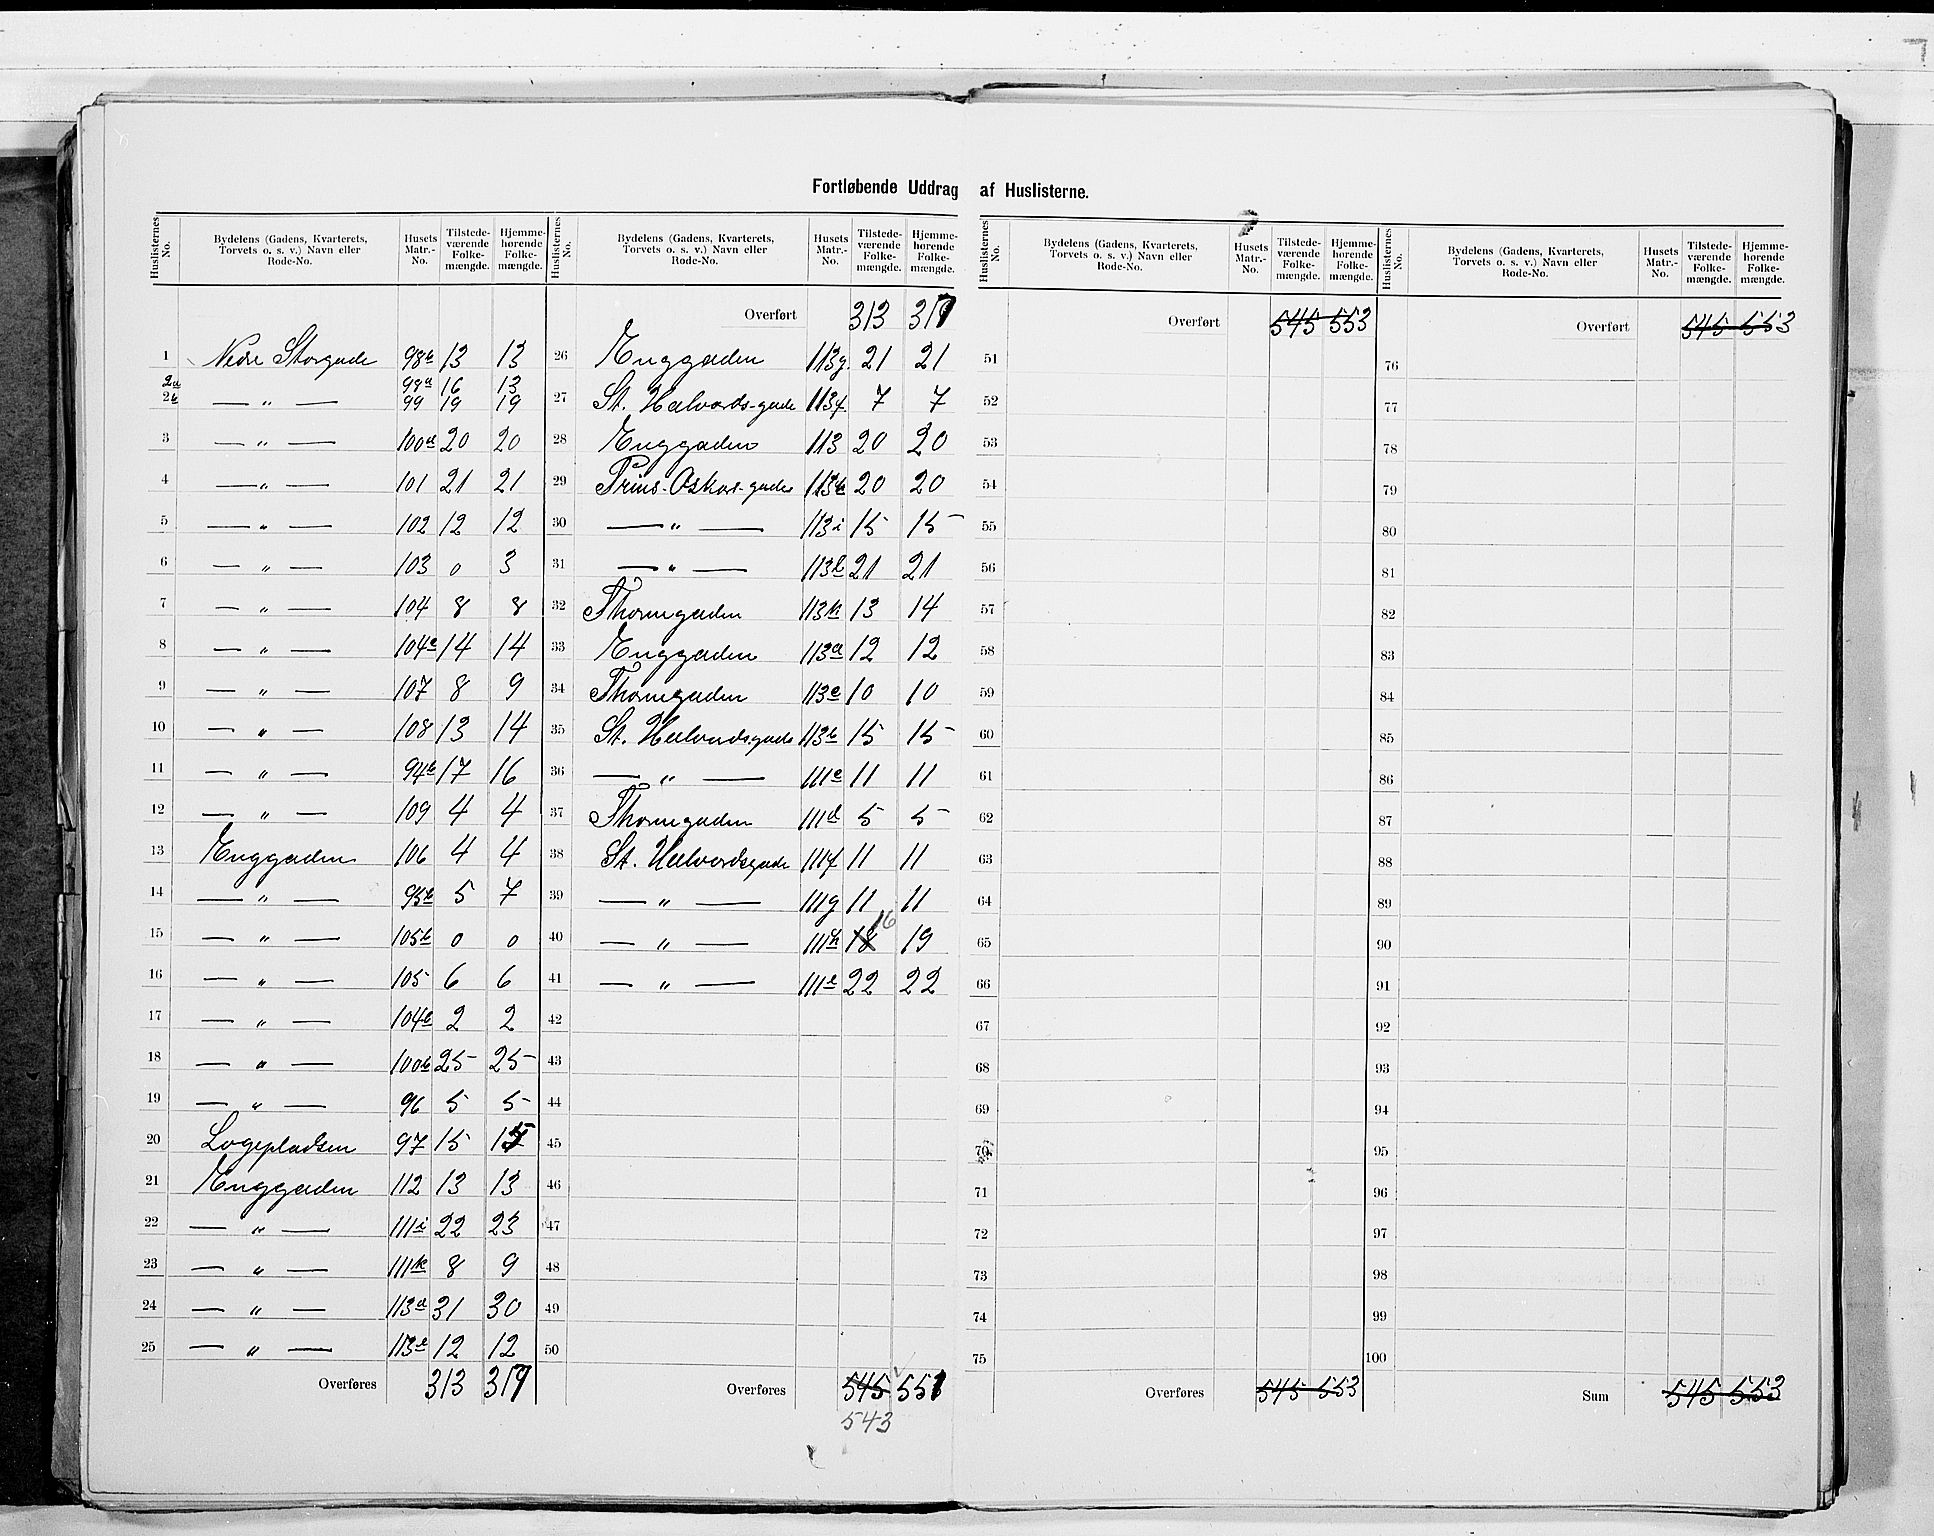 Fortløbende Uddrag af Huslisterne.
Huslisternes No. Bydelens (Gadens, Kvarterets, Torvets o. s. v.) Navn eller Rode-No. Husets Matr.-No. Tilstede-værende Folke-mængde. Hjemme-hørende Folke-mængde.
1 Nedre Storgade 98b 13 13
2a 98a 16 13
2b — „ — 99 19 19
3 — „ — 100a 20 20
4 — „ — 101 21 21
5 — „ — 102 12 12
6 — „ — 103 0 3
7 — „ — 104 8 8
8 — „ — 104a 14 14
9 — „ — 107 8 9
10 — „ — 108 13 14
11 — „ — 94b 17 16
12 — „ — 109 4 4
13 Enggaden 106 4 4
14 — „ — 95b 5 7
15 — „ — 105b 0 0
16 — „ — 105 6 6
17 — „ — 104b 2 2
18 — „ — 100b 25 25
19 — „ — 96 5 5
20 Løgepladsen 97 15 15
21 Enggaden 112 13 13
22 — „ — 111i 22 23
23 — „ — 111k 8 9
24 — „ — 113d 31 30
25 — „ — 113e 12 12
Overføres 313 319
Huslisternes No. Bydelens (Gadens, Kvarterets, Torvets o. s. v.) Navn eller Rode-No. Husets Matr.-No. Tilstede-værende Folke-mængde. Hjemme-hørende Folke-mængde.
Overført 313 317
26 Enggaden 113g. 21 21
27 St. Halvards-gade 113f 7 7
28 Enggaden 113 20 20
29 Prins-Oskars-gade 20 20
30 — „ — 113i 15 15
31 — „ — 21 21
32 Thornegaden 113k 13 14
33 Enggaden 113a 12 12
34 Thornegaden 113c 10 10
35 St. Halvardsgade 113b 15 15
36 — „ — 111e 11 11
37 Thornegaden 111d 5 5
38 St. Halvardsgade 111f 11 11
39 — „ — 111g 11 11
40 — „ — 111h 18 16 19
41 — „ — 22 22
42
43
44
45
46
47
48
49
50
Overføres 545 551
543
Huslisternes No. Bydelens (Gadens, Kvarterets, Torvets o. s. v.) Navn eller Rode-No. Husets Matr.-No. Tilstede-værende Folke-mængde. Hjemme-hørende Folke-mængde.
Overført 545 553
51
52
53
54
55
56
57
58
59
60
61
62
63
64
65
66
67
68
69
70
71
72
73
74
75
Overføres 545 553
Huslisternes No. Bydelens (Gadens, Kvarterets, Torvets o. s. v.) Navn eller Rode-No. Husets Matr.-No. Tilstede-værende Folke-mængde. Hjemme-hørende Folke-mængde.
Overført 545 553
76
77
78
79
80
81
82
83
84
85
86
87
88
89
90
91
92
93
94
95
96
97
98
99
100
Sum 545 553